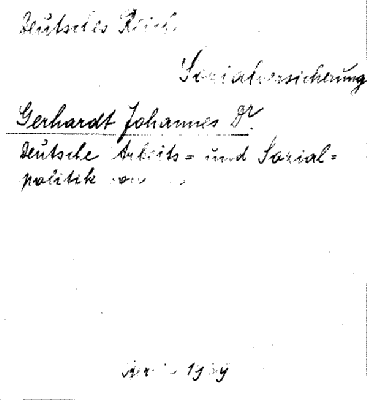 Deutsches Reich
Sozialversicherung
Gerhardt Johannes Dr.
Deutsche Arbeits= und Sozial=
politik von